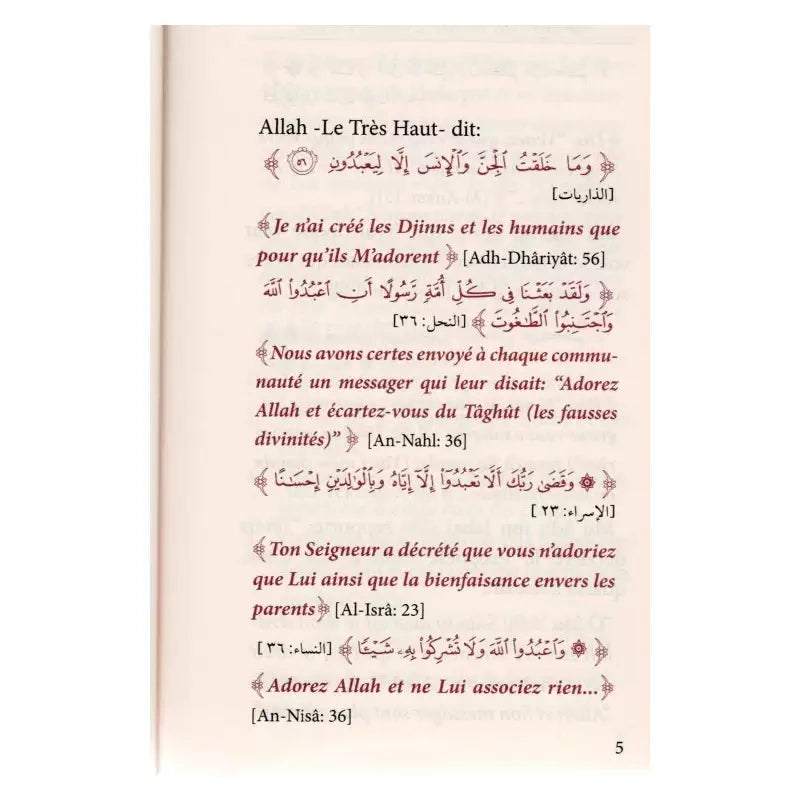 Allah -Le Très Haut- dit:
﴿ وَمَا خَلَقْتُ ٱلْجِنَّ وَٱلْإِنسَ إِلَّا لِيَعْبُدُونِ ٥٦ ﴾
[الذاريات]
﴾Je n'ai créé les Djinns et les humains que
pour qu'ils M'adorent ﴿ [Adh-Dhâriyât: 56]
﴿ وَلَقَدْ بَعَثْنَا فِى كُلِّ أُمَّةٍ رَّسُولًا أَنِ ٱعْبُدُوا۟ ٱللَّهَ
وَٱجْتَنِبُوا۟ ٱلطَّـٰغُوتَ ﴾ [النحل: ٣٦]
﴾Nous avons certes envoyé à chaque commu-
nauté un messager qui leur disait: “Adorez
Allah et écartez-vous du Tâghût (les fausses
divinités)” ﴿ [An-Nahl: 36]
﴿ ۞ وَقَضَىٰ رَبُّكَ أَلَّا تَعْبُدُوٓا۟ إِلَّآ إِيَّاهُ وَبِٱلْوَٰلِدَيْنِ إِحْسَـٰنًا ﴾
[الإسراء: ٢٣]
﴾ Ton Seigneur a décrété que vous n'adoriez
que Lui ainsi que la bienfaisance envers les
parents﴿ [Al-Isrâ: 23]
﴿ ۞ وَٱعْبُدُوا۟ ٱللَّهَ وَلَا تُشْرِكُوا۟ بِهِۦ شَيْـًٔا ﴾ [النساء: ٣٦]
﴾ Adorez Allah et ne Lui associez rien...﴿
[An-Nisâ: 36]
5